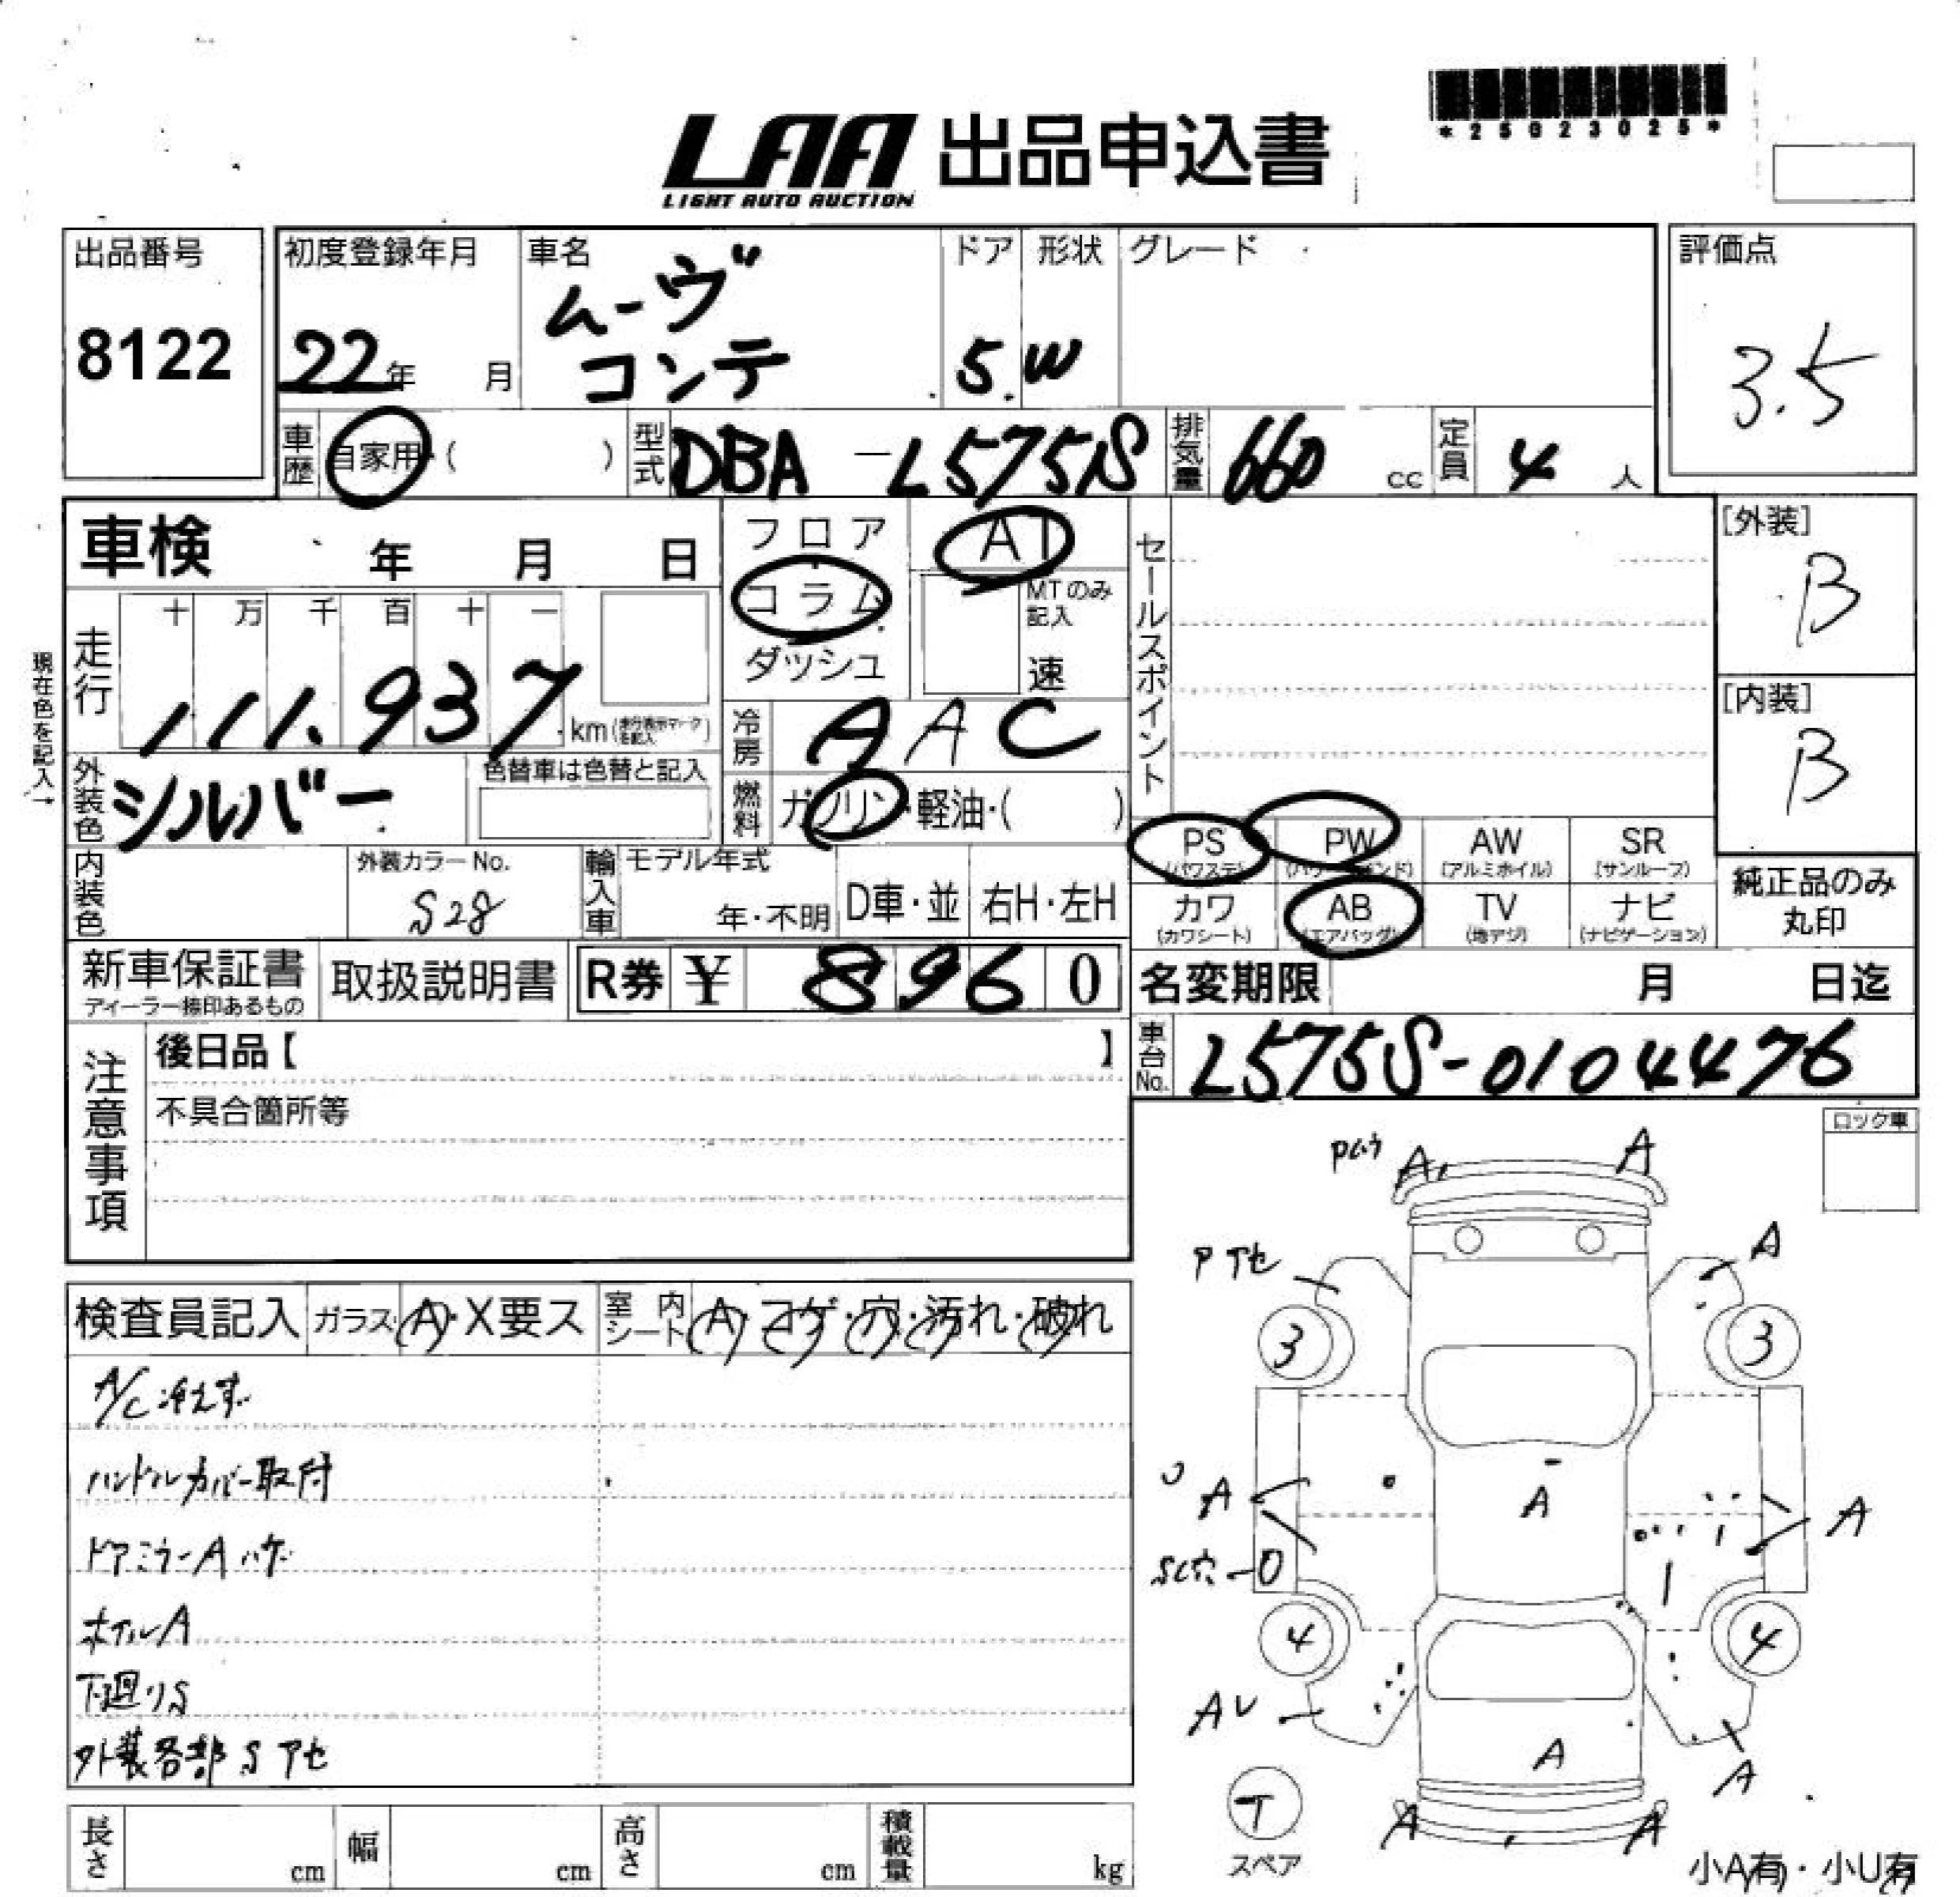 *25023025*
LAA 出品申込書
LIGHT AUTO AUCTION
出品番号
8122
初度登録年月
22年 月
車名
ムーヴ
コンテ
ドア
5.
形状
W
グレード
評価点
3.5
車歴 自家用・( )
型式 DBA-L575S
排気量 660 cc
定員 4 人
車検 年 月 日
フロア
コラム
ダッシュ
AT
MTのみ
記入
速
セールスポイント
[外装]
B
[内装]
B
現在色を記入→
走行
十 万 千 百 十 一
111.937 km
冷房 A A C
外装色 シルバー
色替車は色替と記入
燃料 ガソリン・軽油・( )
内装色
外装カラーNo.
S28
輸入車
モデル年式
年・不明
D車・並
右H・左H
PS
(パワステ)
PW
AW
(アルミホイル)
SR
(サンルーフ)
カワ
(カワシート)
AB
(エアバッグ)
TV
(地デジ)
ナビ
(ナビゲーション)
純正品のみ
丸印
新車保証書
ディーラー捺印あるもの
取扱説明書
R券 ¥ 896 0
名変期限 月 日迄
注意事項
後日品【 】
不具合箇所等
車台No. L575S-0104476
ロック車
検査員記入
ガラス A・X要ス
室内
シート
A・コゲ・穴・汚れ・破れ
A/C 冷えず
ハンドルカバー取付
ドアミラーA ハゲ
ホイルA
下廻りS
外装各部 S アセ
A
A
P アセ
A
3
3
A
A
A
SC穴
4
4
AU
A
A
A
A
T
スペア
小A有・小U有
長さ cm
幅 cm
高さ cm
積載量 kg